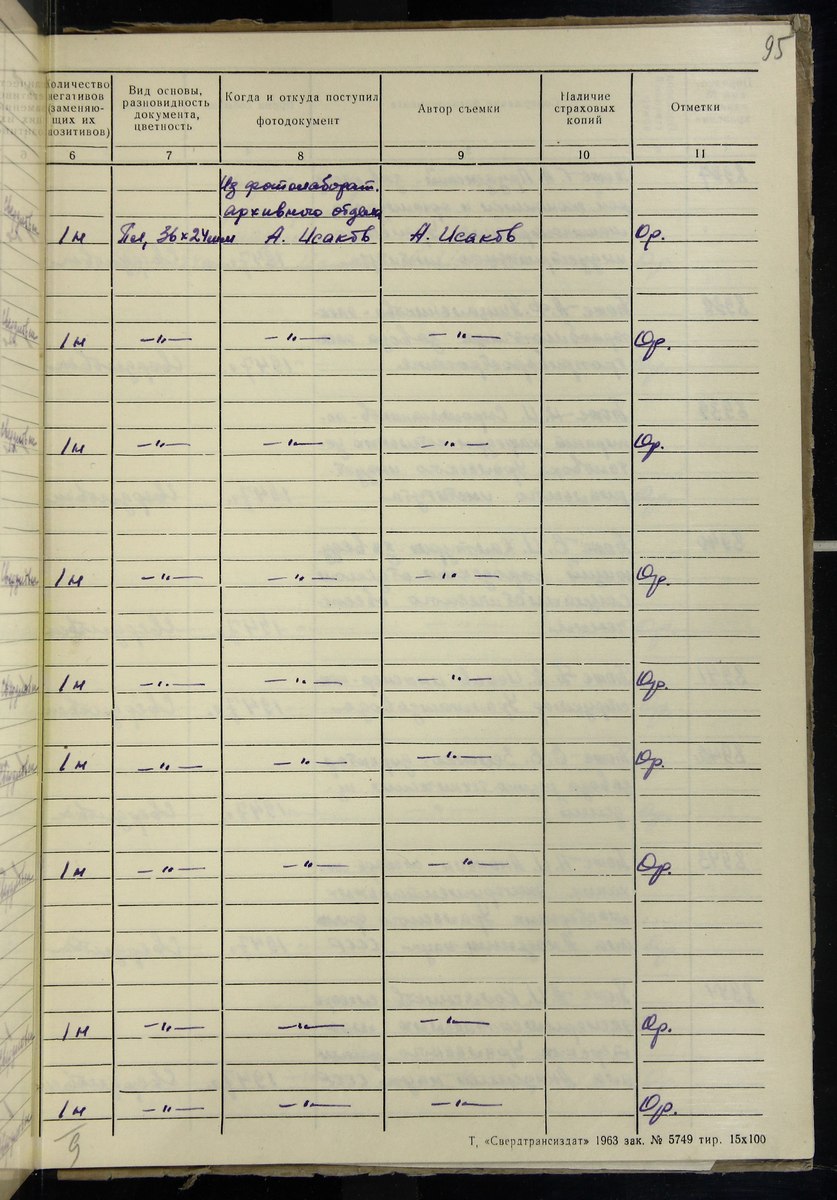 95
количество
негативов
(заменяю-
щих их
позитивов)
Вид основы,
разновидность
документа,
цветность
Когда и откуда поступил
фотодокумент
Автор съемки
Наличие
страховых
копий
Отметки
6 6 7 8 9 10 11
Из фотолаборат.
архивного отдела
1н Пл, 36×24мм А. Исаков А. Исаков Ор.
1н —"— —"— —"— Ор.
1н —"— —"— —"— Ор.
1н —"— —"— —"— Ор.
1н —"— —"— —"— Ор.
1н —"— —"— —"— Ор.
1н —"— —"— —"— Ор.
1н —"— —"— —"— Ор.
1н —"— —"— —"— Ор.
9
Т, «Свердтрансиздат» 1963 зак. № 5749 тир. 15х100